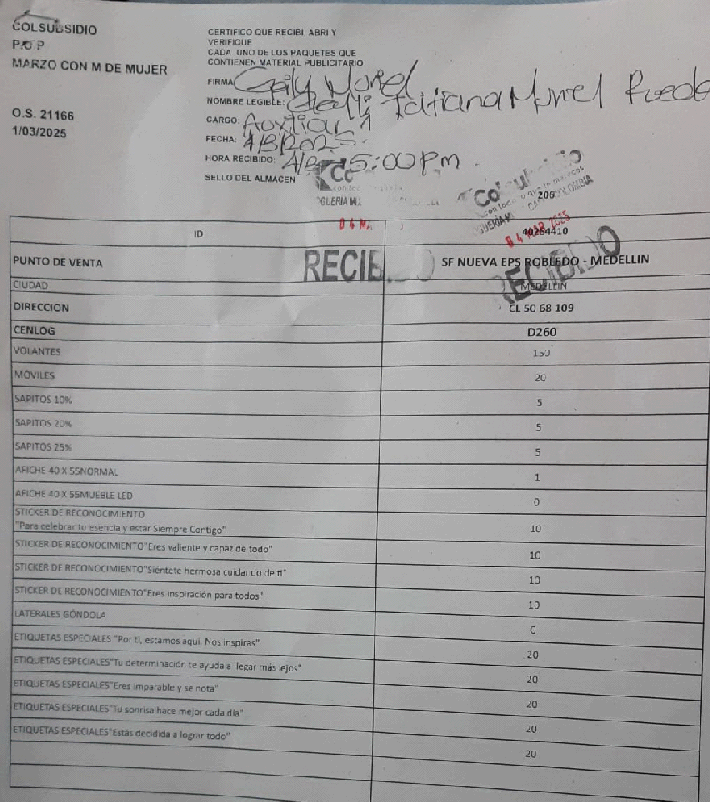 COLSUBSIDIO
P.O P
MARZO CON M DE MUJER
O.S. 21166
1/03/2025
CERTIFICO QUE RECIBI, ABRI Y
VERIFIQUE
CADA UNO DE LOS PAQUETES QUE
CONTIENEN MATERIAL PUBLICITARIO
FIRMA
NOMBRE LEGIBLE: Tatiana
CARGO
FECHA:
HORA RECIBIDO: 5:00 Pm.
SELLO DEL ALMACEN
206
ID
PUNTO DE VENTA SF NUEVA EPS ROBLEDO - MEDELLIN
CIUDAD MEDELLIN
DIRECCION CL 50 68 109
CENLOG D260
VOLANTES 150
MOVILES 20
SAPITOS 10% 5
SAPITOS 20% 5
SAPITOS 25% 5
AFICHE 40 X 55NORMAL 1
AFICHE 40 X 55MUEBLE LED 0
STICKER DE RECONOCIMIENTO
"Para celebrar tu esencia y estar Siempre Contigo" 10
STICKER DE RECONOCIMIENTO"Eres valiente y capaz de todo" 10
STICKER DE RECONOCIMIENTO"Sientete hermosa cuidando de ti" 10
STICKER DE RECONOCIMIENTO"Eres inspiración para todos" 10
LATERALES GÓNDOLA 0
ETIQUETAS ESPECIALES "Por ti, estamos aquí. Nos inspiras" 20
ETIQUETAS ESPECIALES"Tu determinación te ayuda a llegar más lejos" 20
ETIQUETAS ESPECIALES"Eres imparable y se nota" 20
ETIQUETAS ESPECIALES"Tu sonrisa hace mejor cada día" 20
ETIQUETAS ESPECIALES"Estás decidida a lograr todo" 20